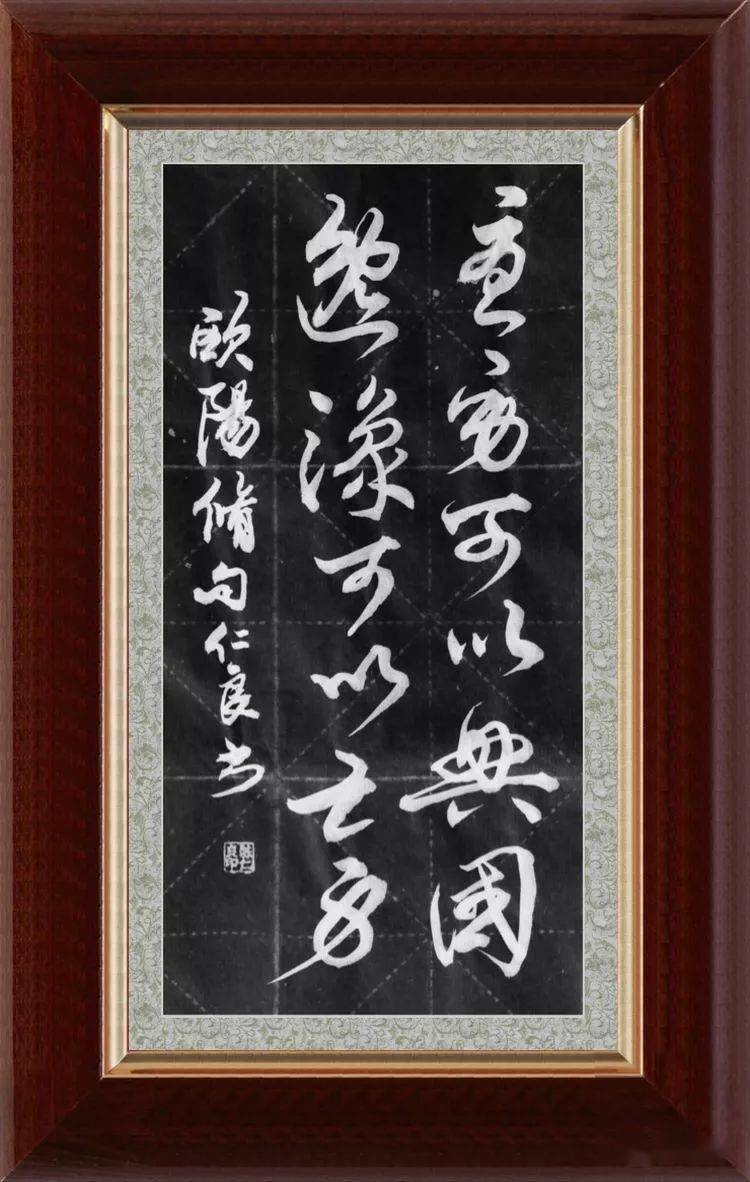 憂勞可以興國
逸豫可以亡身
歐陽脩句仁良书